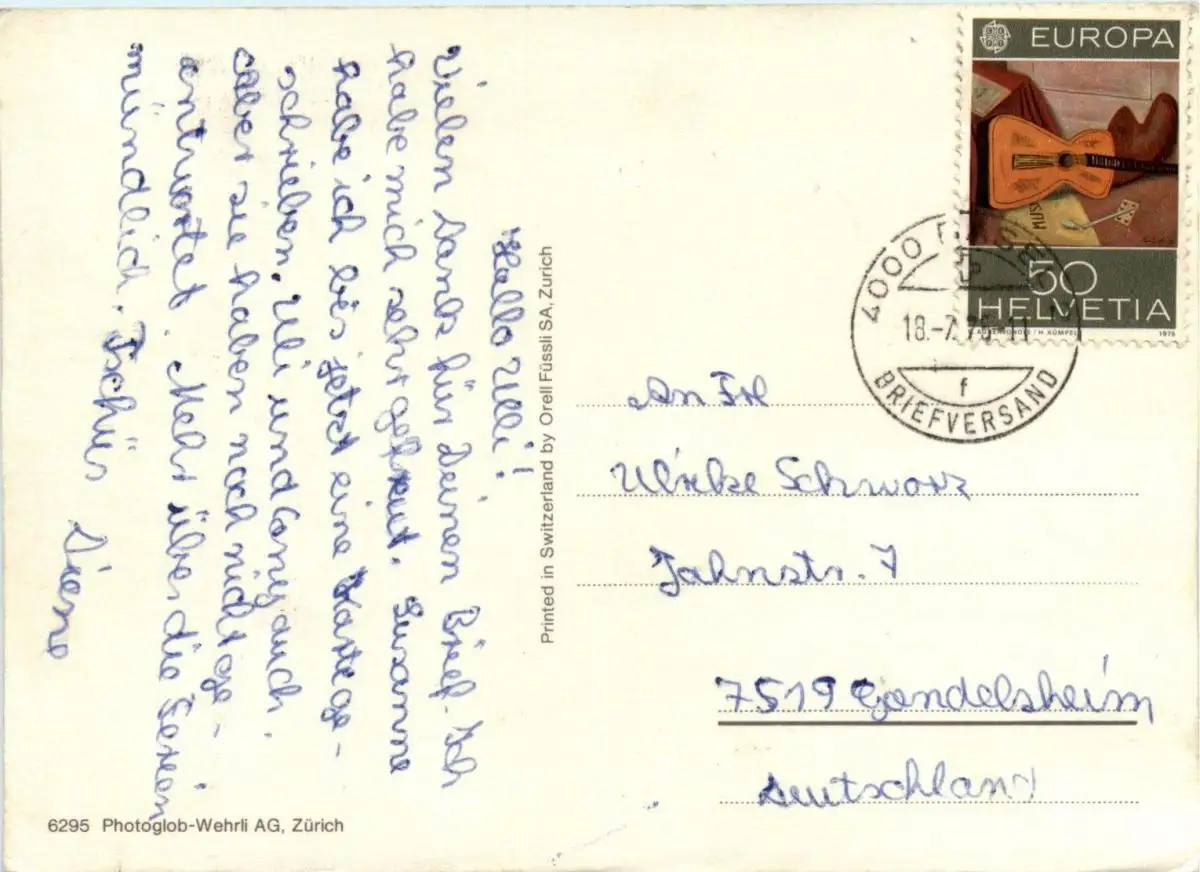 Hallo Ulli!
Vielen Dank für Deinen Brief. Ich
habe mich sehr gefreut. Susanne
habe ich bis jetzt eine Karte ge-
schrieben. Uli und Cony auch.
aber sie haben noch nicht ge-
antwortet. Mehr über die Ferien
mündlich. Tschüs
Printed in Switzerland by Orell Füssli SA, Zurich
6295 Photoglob-Wehrli AG, Zürich
EUROPA
MUSI
50
HELVETIA
H. KÜMPEL
1975
4000
18.-7.
BRIEFVERSAND
f
An Frl
Ulrike Schwarz
Jahnstr. 7
7519 Gondelsheim
Deutschland